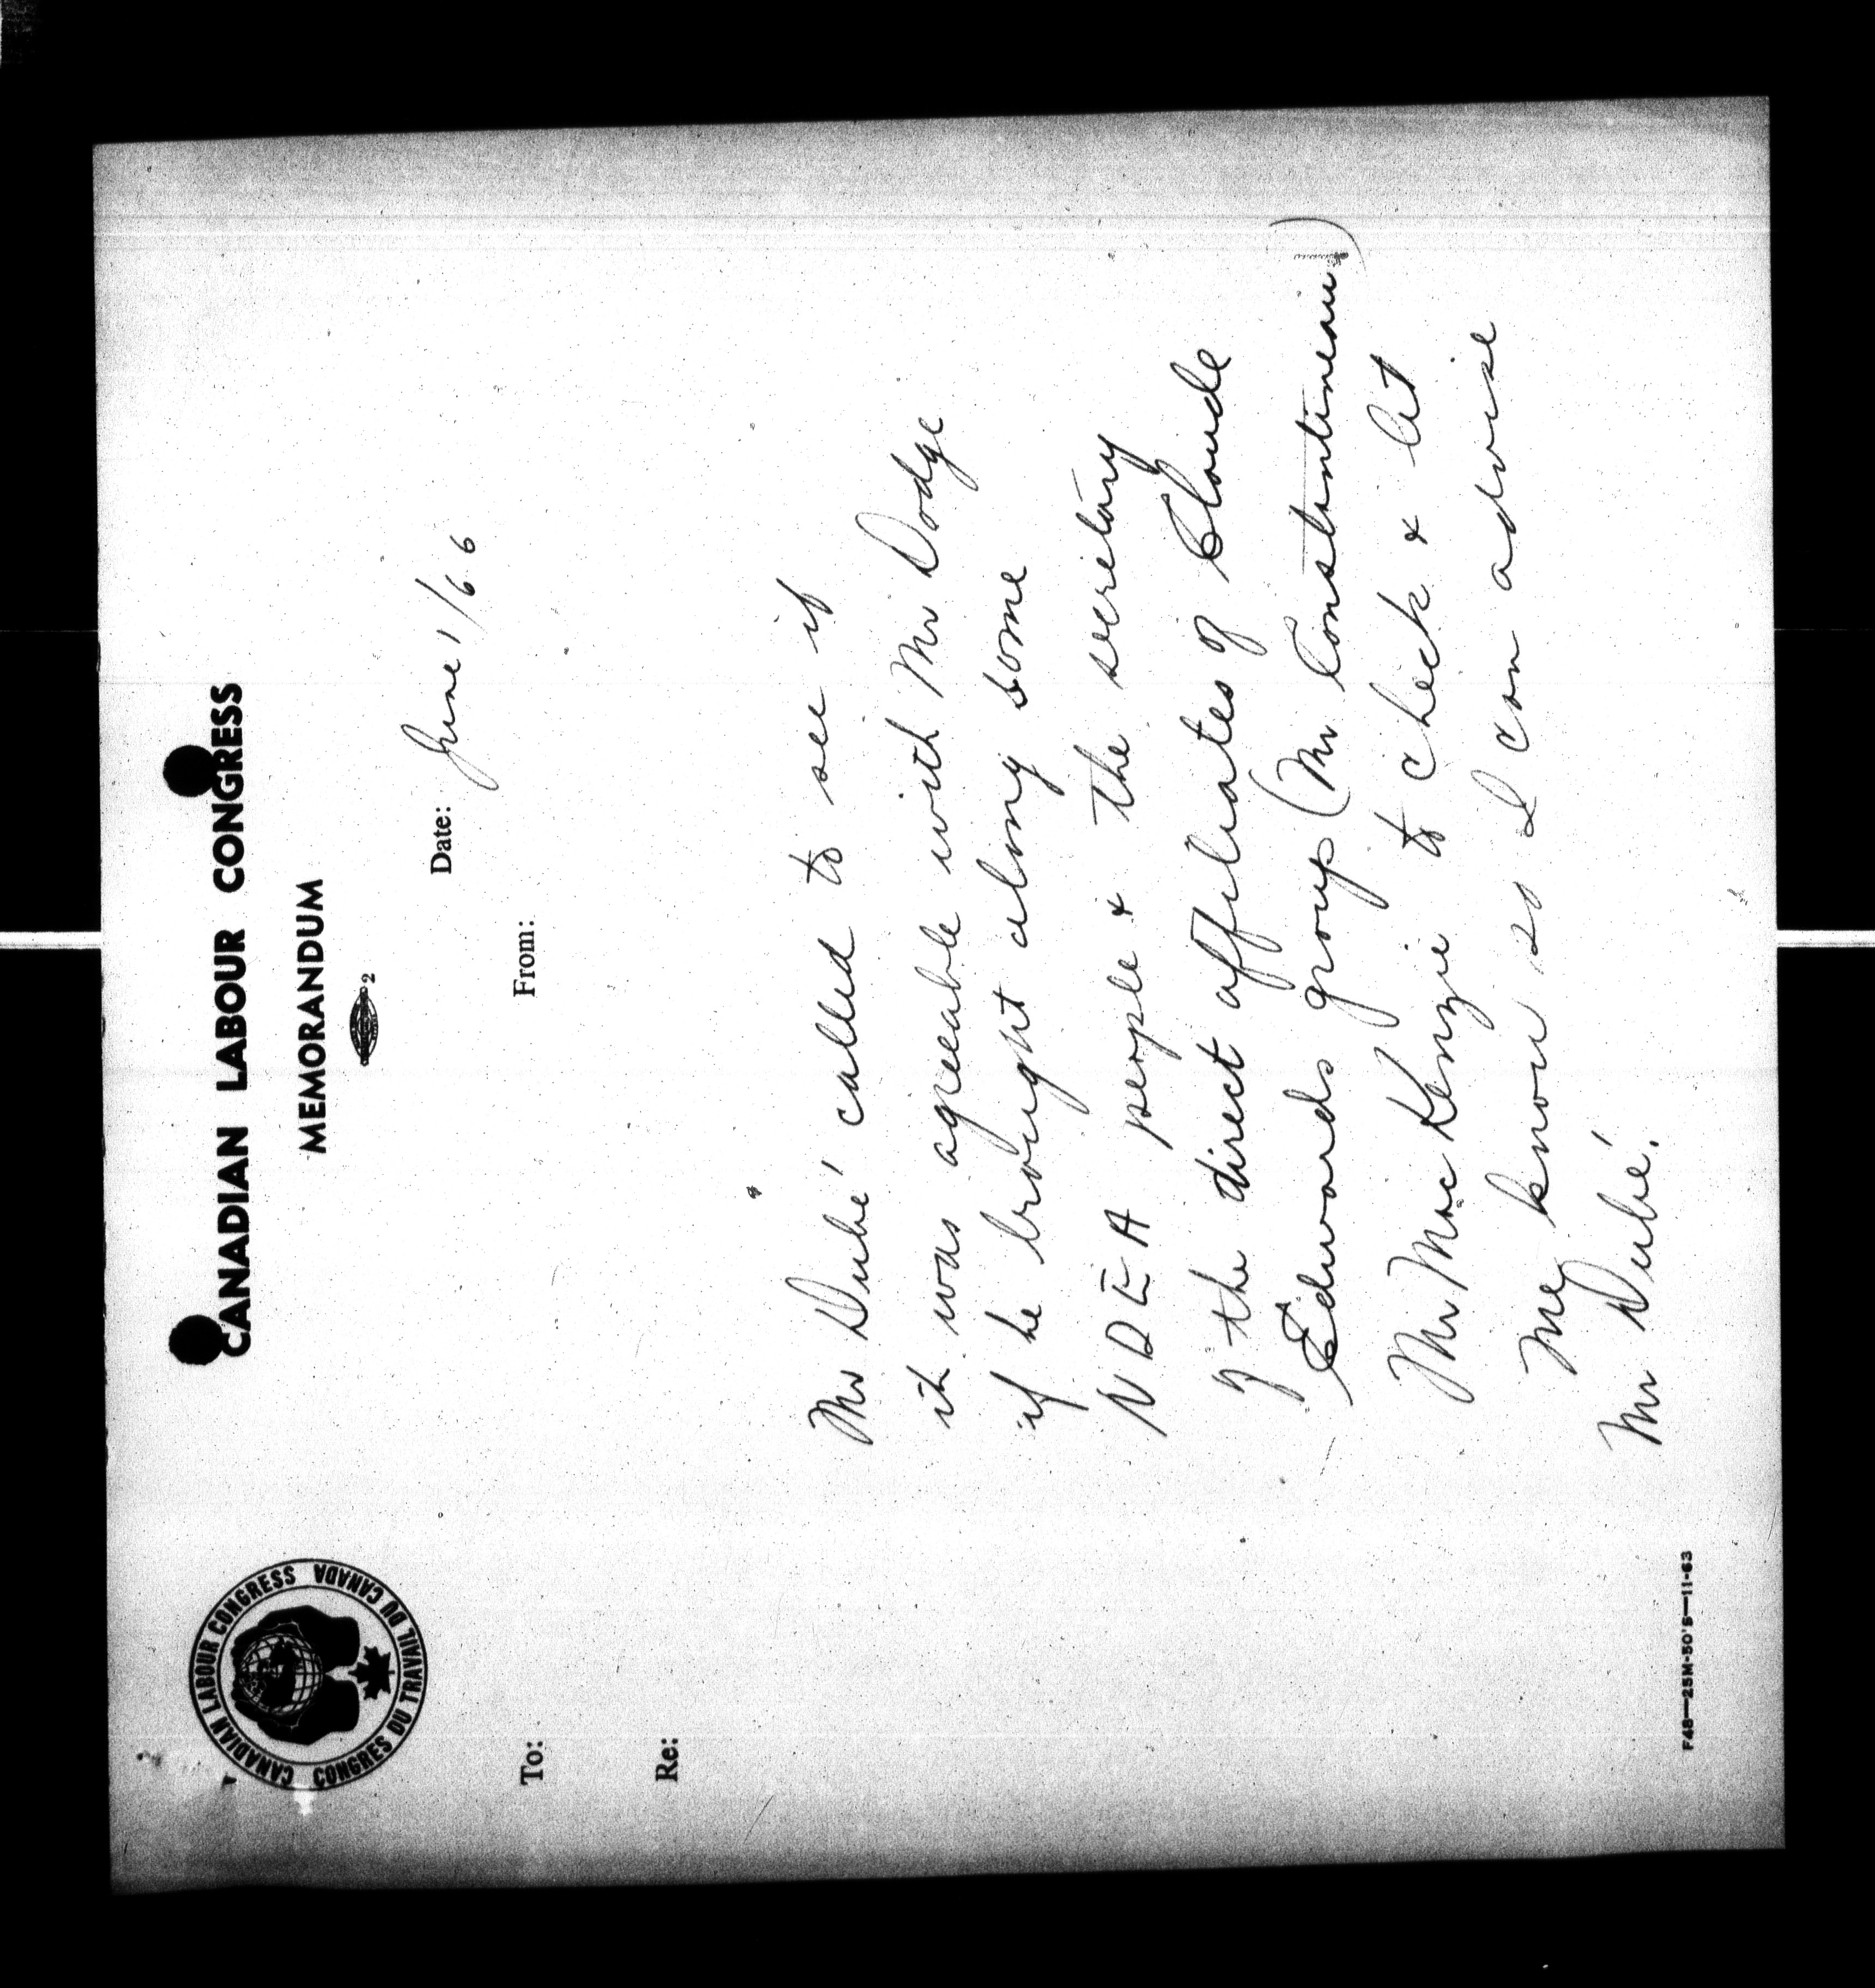 CANADIAN LABOUR CONGRESS
MEMORANDUM
2
CANADIAN LABOUR CONGRESS
CONGRES DU TRAVAIL DU CANADA
Date: June 1/66
To:
From:
Re:
Mr Dubé called to see if
it was agreeable with Mr Dodge
if he brought along some
NDEA people & the secretary
of the direct affiliates of Claude
Edwards group (Mr Constantineau)
Mr MacKenzie to check & let
me know so I can advise
Mr Dubé.
F48—25M-50'S—11-63